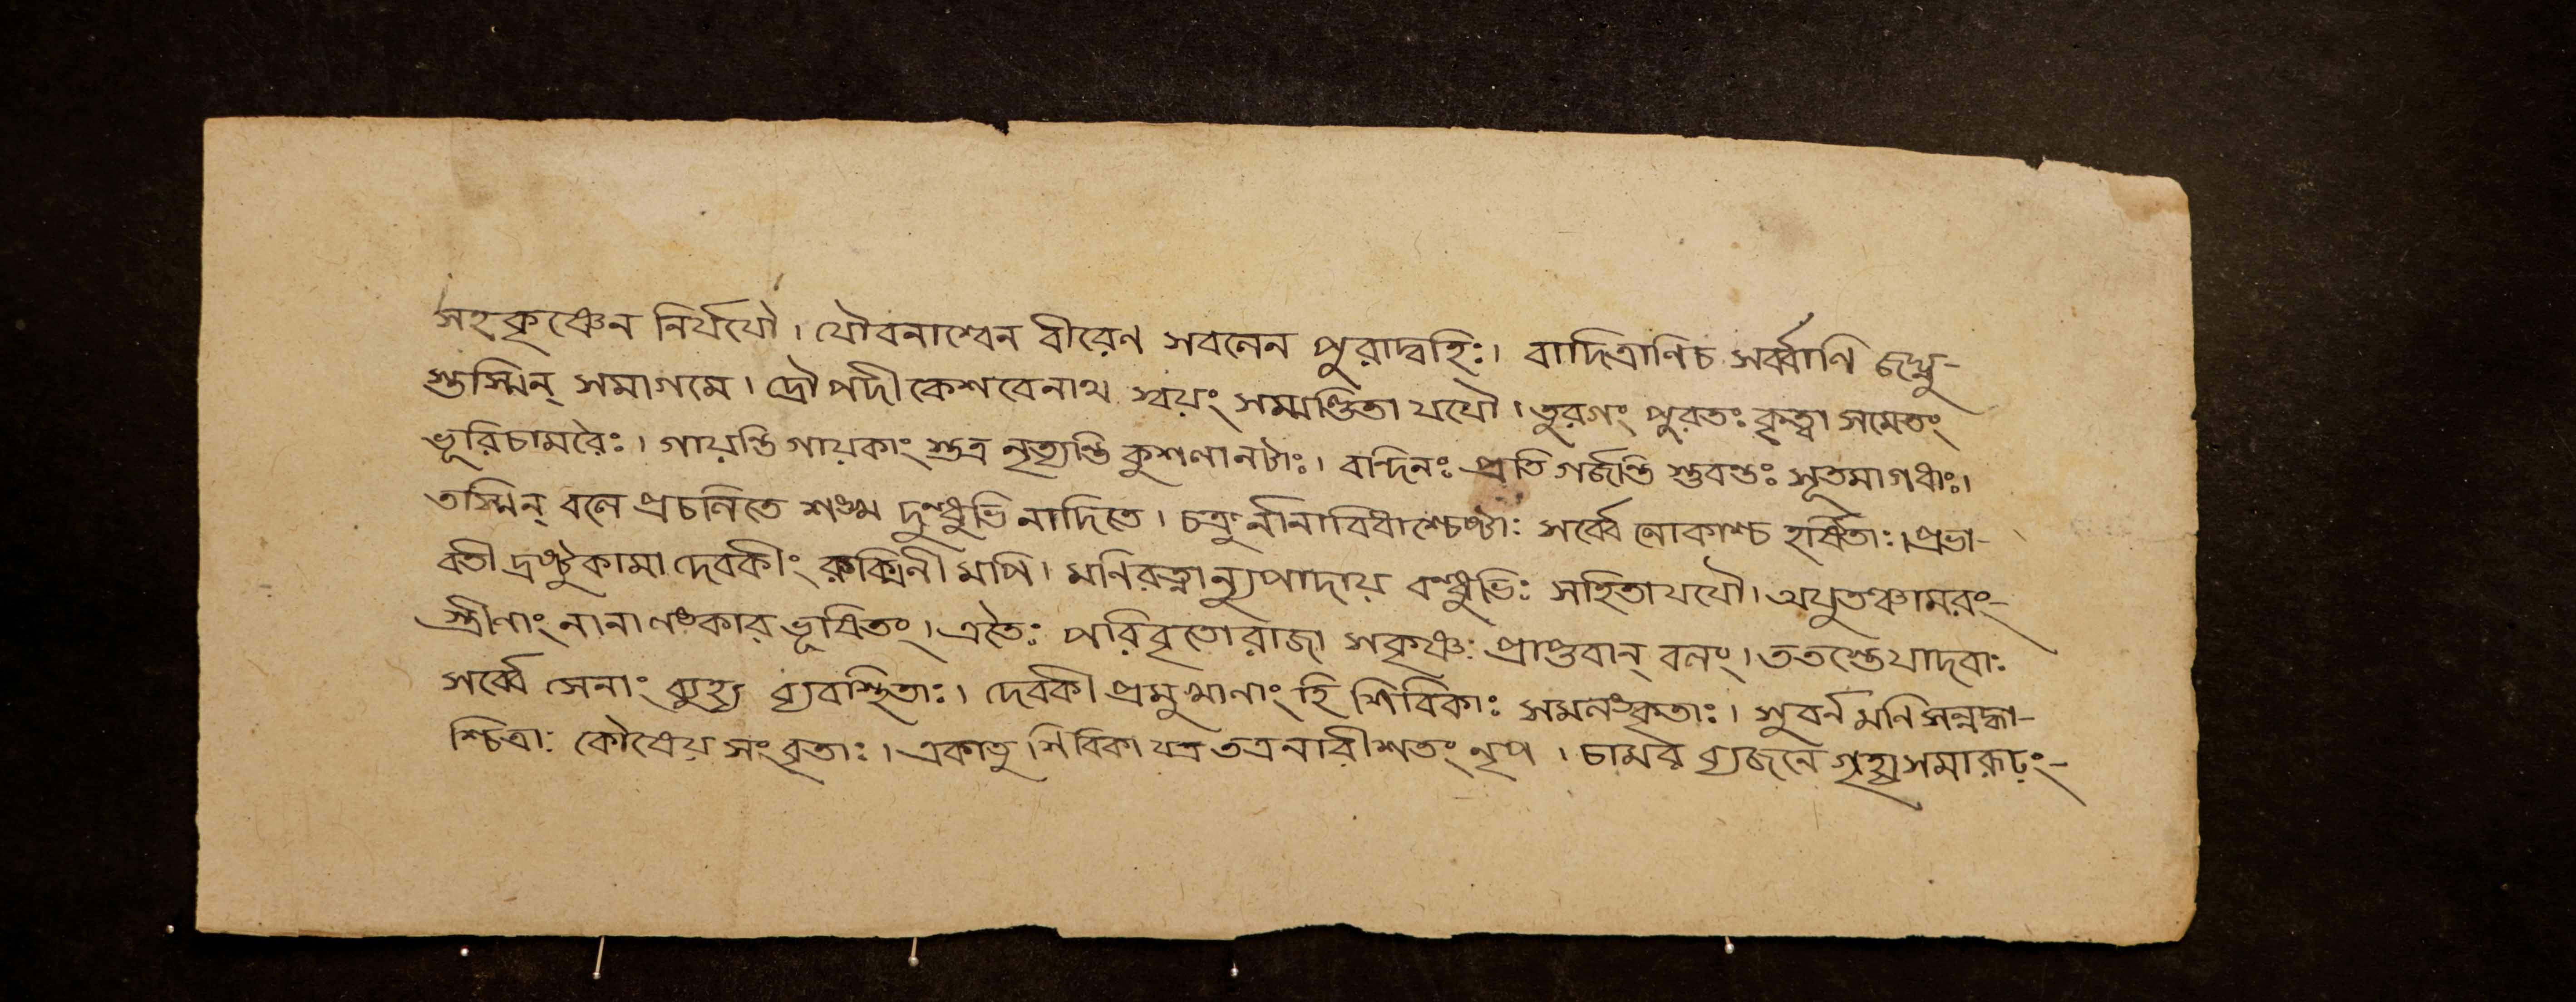 সহকৃষ্ণেন নির্যযৌ। যৌবনাশ্বেন বীরেণ সবলেন পুরাদ্বহিঃ। বাদিত্রাণিচ সর্ব্বাণি জঘ্নু-
স্তস্মিন্ সমাগমে। দ্রৌপদী কেশবেনাথ স্বয়ং সম্মণ্ডিতা যযৌ। তুরগং পুরতঃ কৃত্বা সমেতং
ভূরিচামরৈঃ। গায়ন্তি গায়কাং স্তত্র নৃত্যন্তি কুশলানটাঃ। বন্দিনঃ প্রতি গর্জন্তি স্তুবন্তঃ সূতমাগধাঃ।
তস্মিন্ বলে প্রচলিতে শঙ্খ দুন্দুভি নাদিতে। চক্রুর্নানাবিধাশ্চেষ্টাঃ সর্ব্বে লোকাশ্চ হর্ষিতাঃ। প্রভা-
বতী দ্রষ্টুকামা দেবকীং রুক্মিনী মপি। মনিরত্নান্যুপাদায় বন্ধুভিঃ সহিতাযযৌ। অযুতঞ্চামরং-
স্ত্রীণাং নানালঙ্কার ভূষিতং। এতৈঃ পরিবৃতোরাজা সকৃষ্ণঃ প্রাপ্তবান্ বলং। ততস্তেযাদবাঃ
সর্ব্বে সেনাং ব্যুহ্য ব্যবস্থিতাঃ। দেবকী প্রমুখানাং হি শিবিকাঃ সমলঙ্কৃতাঃ। সুবর্ন মনি সন্নদ্ধা-
শ্চিত্রাঃ কৌষেয় সংবৃতাঃ। একাতু শিবিকা যত্র তত্রনারীশতং নৃপ। চামর ব্যজনে গৃহ্যসমারূঢ়ং-